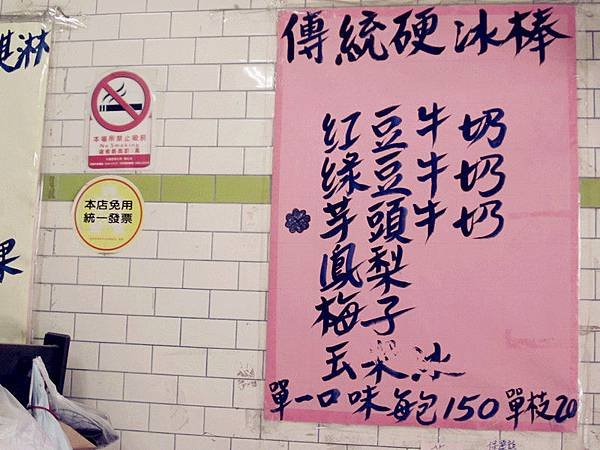 淇淋
果
本場所禁止吸菸
No Smoking
本店免用
統一發票
傳統硬冰棒
紅豆牛奶
綠豆牛奶
芋頭牛奶
鳳梨
梅子
玉米冰
單一口味每包150單枝20